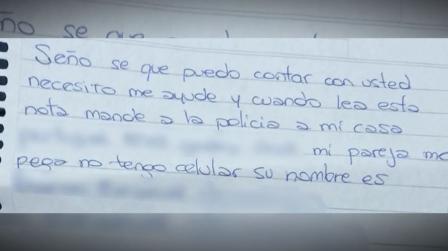 Seño se que puedo contar con usted
necesito me ayude y cuando lea esta
nota mande a la policia a mi casa
mi pareja me
pega no tengo celular su nombre es